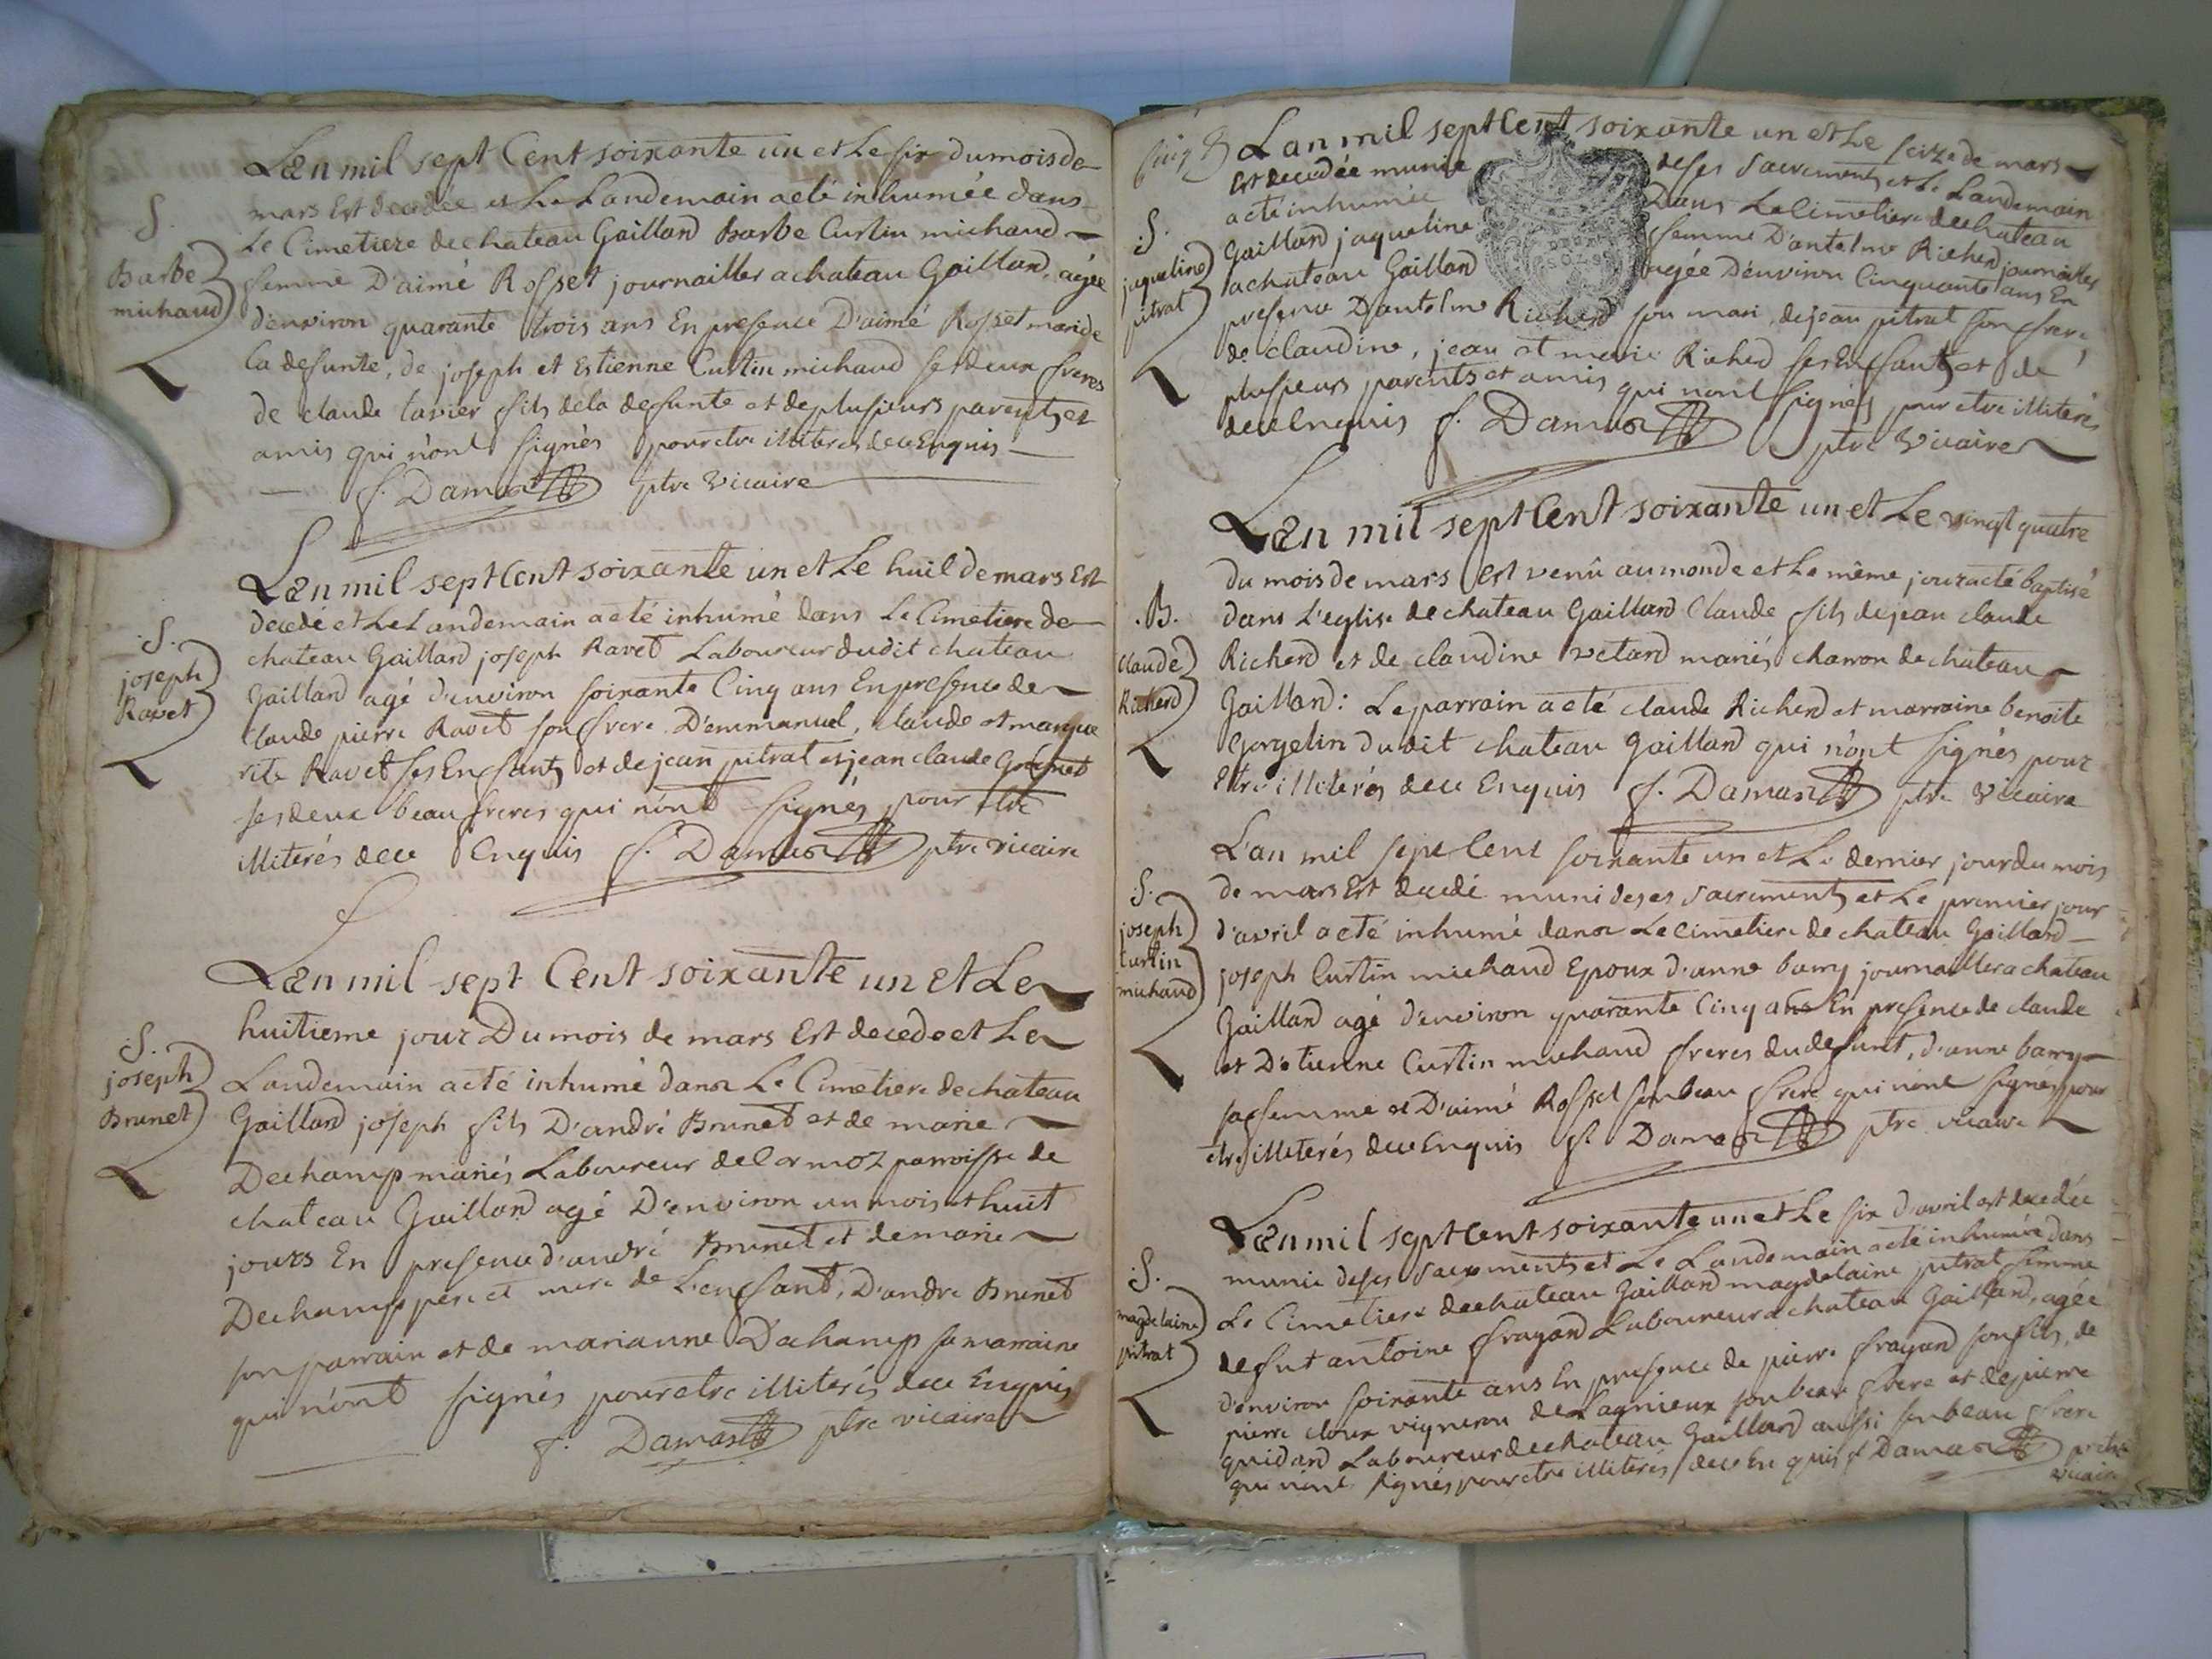 L'an mil sept Cent soixante un et Le six du mois de
mars Est decedée et Le Landemain a eté inhumée dans
Le Cimetiere de chateau Gaillard Barbe Curtin michaud
femme D'aimé Rosset journaillier a chateau Gaillard, agée
d'environ quarante trois ans En presence D'aimé Rosset mari de
la defunte, de joseph et Estienne Curtin michaud ses deux freres
de claude tavier fils de la defunte et de plusieurs parents et
amis qui n'ont signés pour etre illiterés de ce Enquis
f. Damas ptre Vicaire
S.
Barbe
michaud
L'an mil sept Cent soixante un et Le huit de mars Est
decedé et Le Landemain a eté inhumé dans Le Cimetiere de
chateau Gaillard joseph Ravet Laboureur dudit chateau
Gaillard agé d'environ soixante Cinq ans En presence de
claude pierre Ravet son frere D'emmanuel, claude et margue
rite Ravet ses Enfants et de jean pitrat et jean claude
ses deux beau freres qui n'ont signés pour etre
illiterés de ce Enquis f. Damas ptre vicaire
S.
joseph
Ravet
L'an mil sept Cent soixante un Et Le
huitieme jour Du mois de mars Est decedé et Le
Landemain a eté inhumé dans Le Cimetiere de chateau
Gaillard joseph fils D'andré Brunet et de marie
Dechamp mariés Laboureur de Cormoz parroisse de
chateau Gaillard agé D'environ un mois et huit
jours En presence d'andré Brunet et de marie
Dechamp pere et mere de L'enfant, D'andre Brunet
son parrain et de marianne Dechamp sa marraine
qui n'ont signés pour etre illiterés de ce Enquis
f. Damas ptre vicaire
S.
joseph
Brunet
L'an mil sept Cent soixante un et Le seize de mars
Est decedée munie de ses Sacrements et Le Landemain
a eté inhumée Dans Le Cimetiere de chateau
Gaillard jaqueline femme D'antelme Richerd journaillier
a chateau Gaillard agée D'environ Cinquante ans En
presence D'antelme Richerd son mari, de jean pitrat son frere,
de claudine, jean et marie Richerd ses Enfants et de
plusieurs parents et amis qui n'ont signés pour etre illiterés
de ce Enquis f. Damas ptre Vicaire
S.
jaqueline
pitrat
L'an mil sept Cent soixante un et Le vingt quatre
du mois de mars Est venû au monde et Le même jour a eté baptisé
dans L'eglise de chateau Gaillard Claude fils de jean claude
Richerd et de claudine vetard mariés charron de chateau
Gaillard: Le parrain a eté claude Richerd et marraine benoite
Gorgelin dudit chateau Gaillard qui n'ont signés pour
Etre illiterés de ce Enquis f. Damas ptre Vicaire
.B.
claude
Richerd
L'an mil sept Cent soixante un et Le dernier jour du mois
de mars Est decedé muni de ses Sacrements et Le premier jour
d'avril a eté inhumé dans Le Cimetiere de chateau Gaillard
joseph Curtin michaud Epoux d'anne barry journaillier a chateau
Gaillard agé d'environ quarante Cinq ans En presence de claude
et D'etienne Curtin michaud freres du defunt, d'anne barry
sa femme et D'aimé Rosset son beau frere qui n'ont signés pour
etre illiterés de ce Enquis f. Damas ptre vicaire
S.
joseph
Curtin
michaud
L'an mil sept Cent soixante un et Le six d'avril est decedée
munie de ses Sacrements et Le Landemain a eté inhumée dans
Le Cimetiere de chateau Gaillard magdelaine pitrat femme
defut antoine frayard Laboureur a chateau Gaillard, agée
d'environ soixante ans En presence de pierre frayard son fils, de
pierre cloux vigneron de Lagnieux son beau frere et de pierre
quidard Laboureur de chateau Gaillard aussi son beau frere
qui n'ont signés pour etre illiterés de ce En quis f Damas ptre
vicaire
S.
magdelaine
pitrat